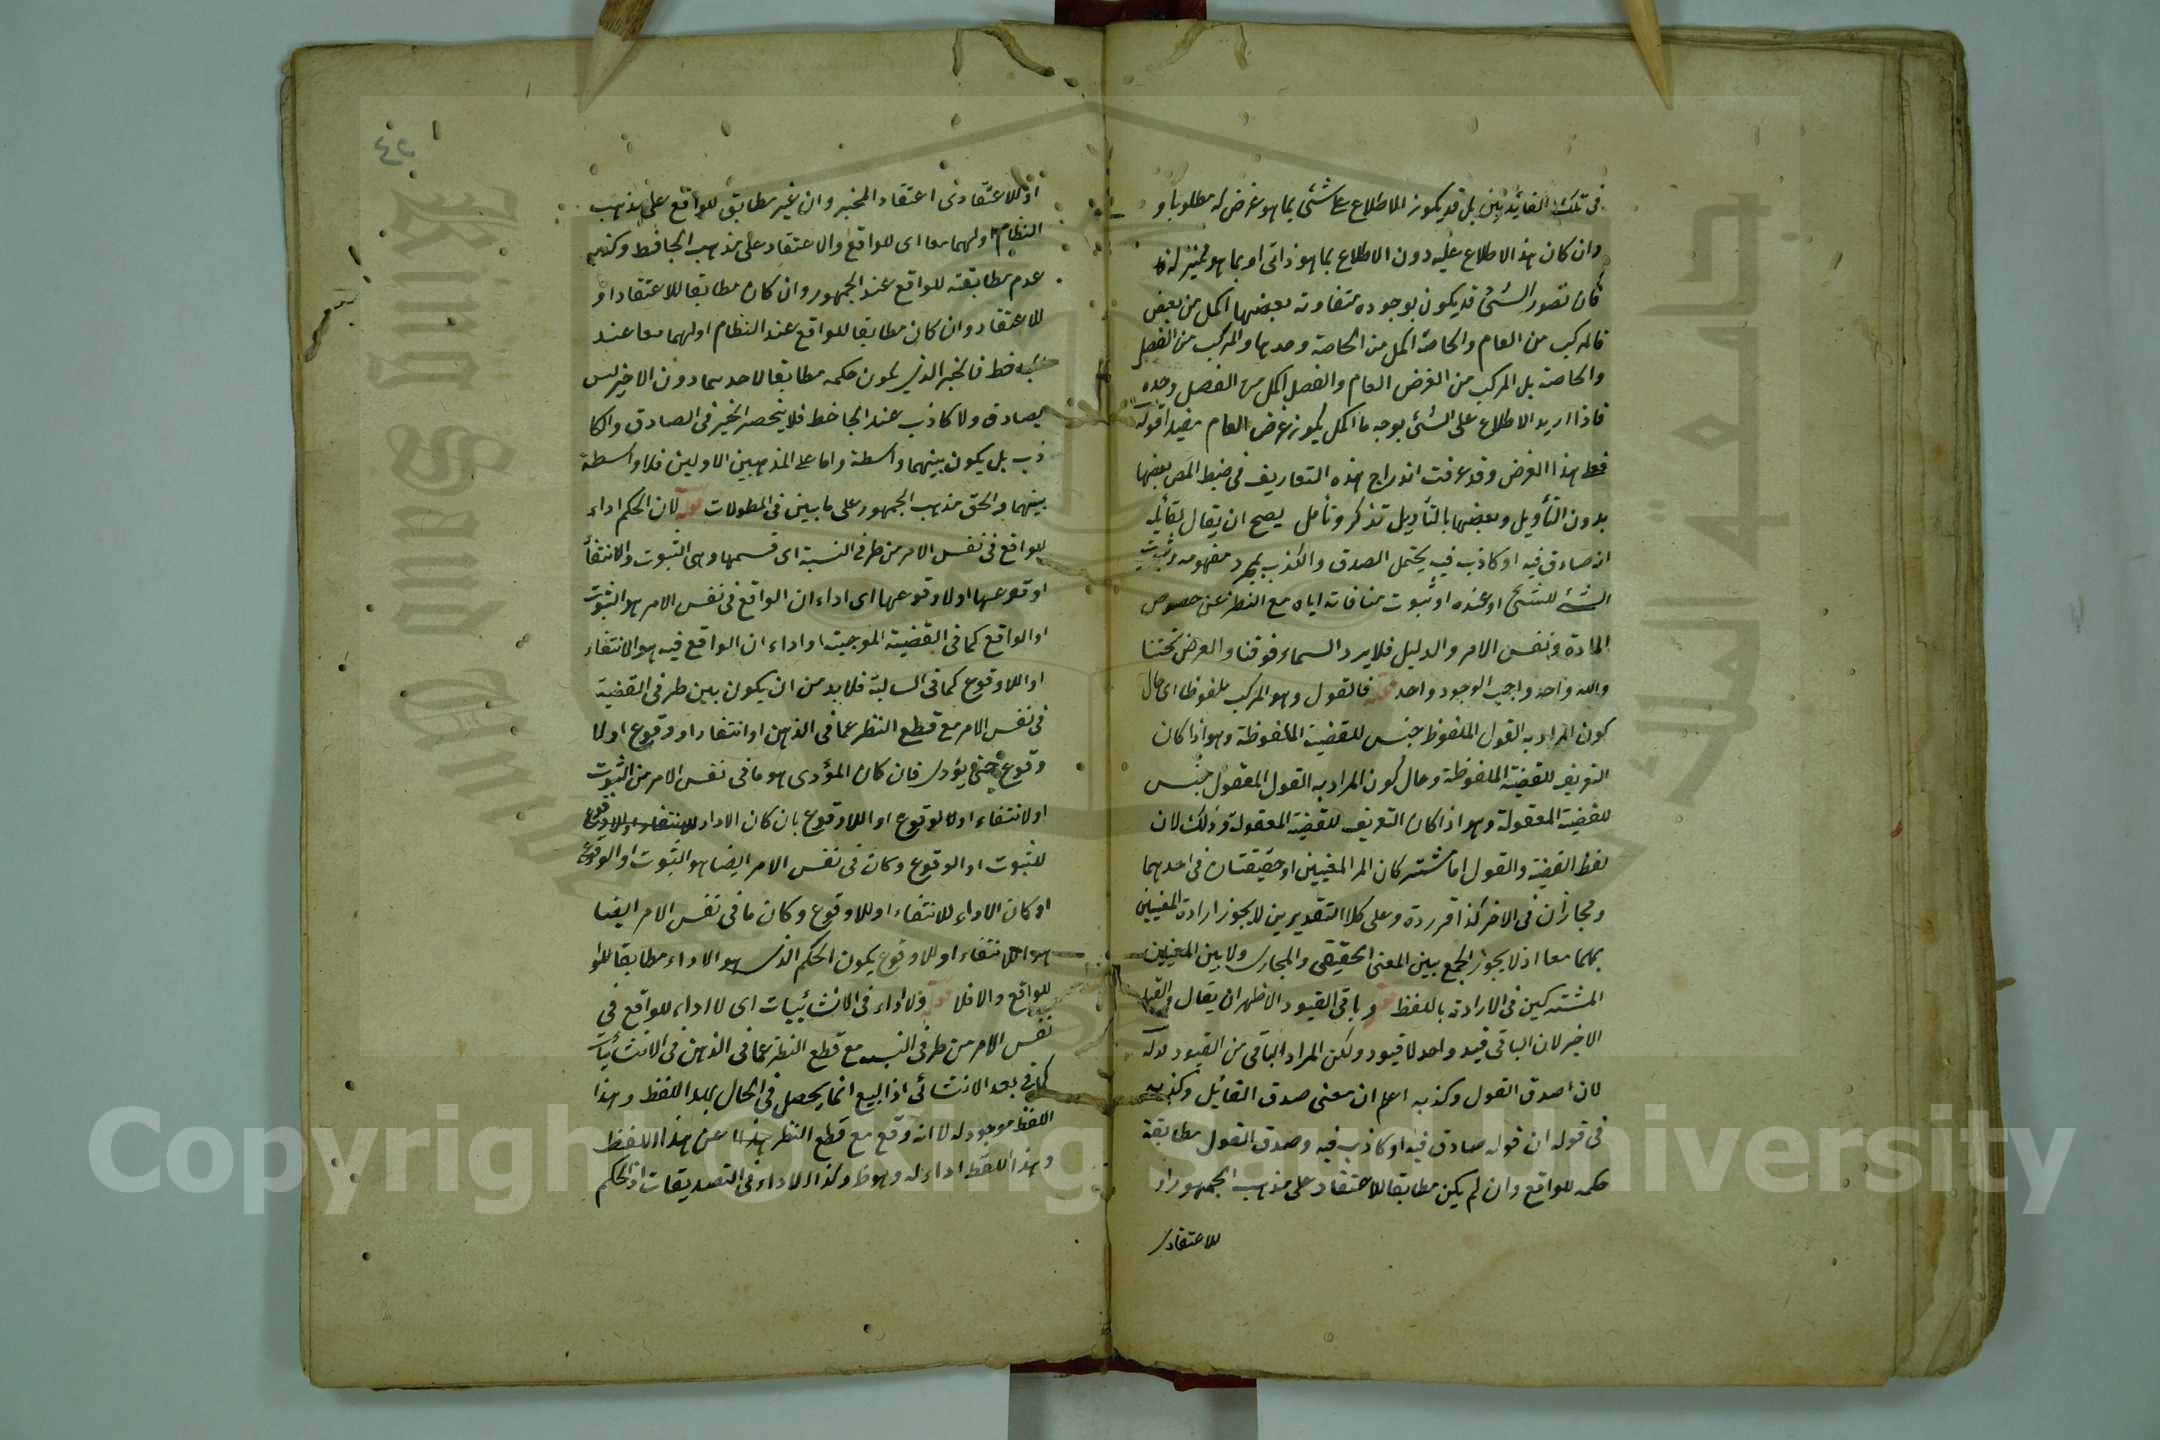 في تلك الفائدتين بل قد يكون الاطلاع على شئ بما هو عرض له مطلوبا و
وان كان هذا الاطلاع عليه دون الاطلاع بما هو ذاتي او بما هو مميز له
فان تصور الشئ قد يكون بوجوه متفاوتة بعضها اكمل من بعض
فالمركب من العام والخاصة اكمل من الخاصة وحدها والمركب من الفصل
والخاصة بل المركب من العرض العام والفصل اكمل من الفصل وحده
فاذا اريد الاطلاع على الشئ بوجه ما اكمل يكون عرض العام مفيدا قوله
فقط هذا الغرض وقد عرفت اندراج هذه التعاريف في ضبط المص بعضها
بدون التأويل وبعضها بالتأويل تذكر وتأمل يصح ان يقال لقائله
انه صادق فيه او كاذب فيه يحتمل الصدق والكذب بمجرد مفهومه وثبوت
الشئ للشئ او عنده او ثبوت منافاته اياه مع النظر عن خصوص
المادة ونفس الامر والدليل فلا يرد السماء فوقنا والارض تحتنا
والله واحد واجب الوجود واحد قوله فالقول وهو المركب ملفوظا اى حال
كون المراد به القول الملفوظ جنس للقضية الملفوظة وهو اذا كان
التعريف للقضية الملفوظة وحال كون المراد به القول المعقول جنس
للقضية المعقولة وهو اذا كان التعريف للقضية المعقولة وذلك لان
لفظ القضية والقول اما مشتركان المر المعنيين او حقيقتان في احدهما
ومجازان في الاخر كذا قرره وعلى كلا التقديرين لا يجوز ارادة المعنيين
بهما معا اذ لا يجوز الجمع بين المعنى الحقيقي والمجازي ولا بين المعنيين
المشتركين في الارادة باللفظ قوله وباقى القيود الاظهر ان يقال والقيد
الاخير لان الباقى قيد واحد لا قيود ولكن المراد الباقى من القيود قوله
لان صدق القول وكذبه اعلم ان معنى صدق القائل وكذبه
في قوله ان قوله صادق فيه او كاذب فيه وصدق القول مطابقة
حكمه للواقع وان لم يكن مطابقا للاعتقاد على مذهب الجمهور او
للاعتقادى
٤٢
او للاعتقادى اعتقاد المخبر وان غير مطابق للواقع على مذهب
النظام او لهما معا اى للواقع والاعتقاد على مذهب الجاحظ وكذبه
عدم مطابقته للواقع عند الجمهور وان كان مطابقا للاعتقاد او
للاعتقاد وان كان مطابقا للواقع عند النظام او لهما معا عند
الجاحظ فالخبر الذى يكون حكمه مطابقا لاحدهما دون الاخر ليس
بصادق ولا كاذب عند الجاحظ فلا ينحصر الخبر في الصادق والكا
ذب بل يكون بينهما واسطة واما على المذهبين الاولين فلا واسطة
بينهما والحق مذهب الجمهور على ما بين في المطولات قوله لان الحكم اداء
للواقع في نفس الامر من طرفى النسبة اى قسمها وهى الثبوت والانتفاء
او وقوعها او لا وقوعها اى اداء ان الواقع في نفس الامر هو الثبوت
او الواقع كما في القضية الموجبة او اداء ان الواقع فيه هو الانتفاء
او اللاوقوع كما في السالبة فلا بد من ان يكون بين طرفى القضية
في نفس الامر مع قطع النظر عما في الذهن او انتفاء او وقوع او لا
وقوع حتى يؤدى فان كان المؤدى هو ما في نفس الامر من الثبوت
او لانتفاء او لالوقوع او اللاوقوع بان كان الاداء
للثبوت او الوقوع وكان في نفس الامر ايضا هو الثبوت او الوقوع
او كان الاداء للانتفاء او للاوقوع وكان ما في نفس الامر ايضا
هو الانتفاء او للاوقوع يكون الحكم الذى هو الاداء مطابقا للوا
للواقع والا فلا قوله ولا اداء في الانشائيات اى لا اداء للواقع في
نفس الامر من طرفى النسبة مع قطع النظر عما في الذهن في الانشائيات
كما في بعت الانشائى اذ البيع انما يحصل في الحال بهذا اللفظ وهذا
اللفظ موجود له لا انه وقع مع قطع النظر عن هذا اللفظ
وهذا اللفظ اداء له وهو ظ وكذا لا اداء في التصديقات اذ الحكم
Copyright © King Saud University
King Saud University
جامعة الملك سعود